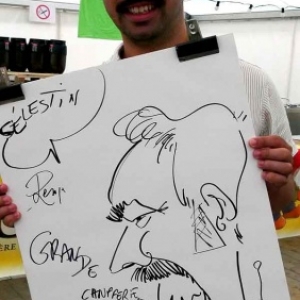 CÉLESTIN
Remi
GRANDE
CANPAERE
ÈRE